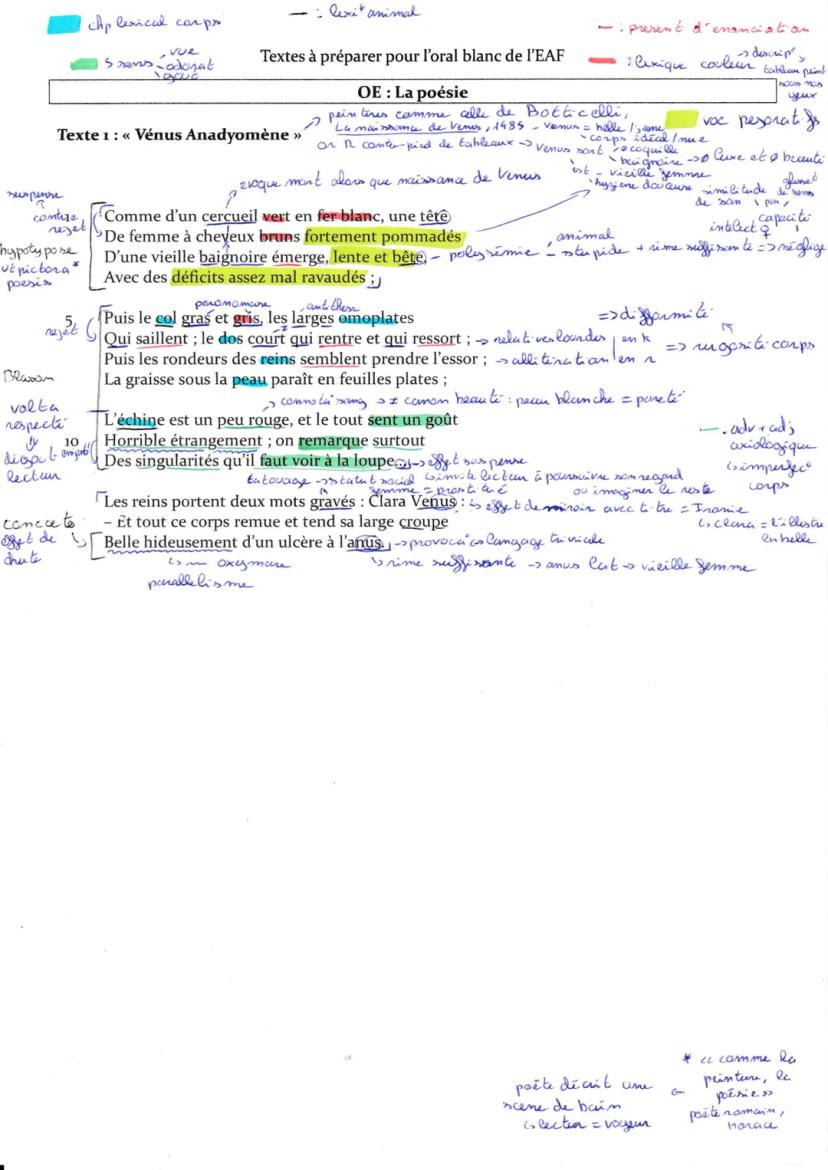 chp lexical corps
— : lexi* animal
— : present d'enonciation
5 sens - vue
- odorat
- gout
Textes à préparer pour l'oral blanc de l'EAF
: lexique couleur
-> descrip°, tableau peint sous nos yeux
OE : La poésie
voc pejoratif
Texte 1 : « Vénus Anadyomène »
peintures comme celle de Botticelli,
La naissance de Venus, 1485 - venus = belle / jeune
corps idéal / nue
or R contre-pied de tableaux -> venus sort coquille
baignoire -> Ø luxe et Ø beauté
est - vieille femme
hygiene douteuse
evoque mort alors que naissance de Venus
suspense
contre rejet
Comme d'un cercueil vert en fer blanc, une tête
hypotypose
De femme à cheveux bruns fortement pommadés
ut pictora*
poesis
D'une vieille baignoire émerge, lente et bête,
- polysémie - animal
- stupide + rime suffisante => néglige
capacité intellect
Avec des déficits assez mal ravaudés ;
paronomase
antithese
5 Puis le col gras et gris, les larges omoplates
=> difformité
rejet
Qui saillent ; le dos court qui rentre et qui ressort ;
-> relatives lourdes / en k
=> rugosité corps
Puis les rondeurs des reins semblent prendre l'essor ;
-> allitération en r
Blason
La graisse sous la peau paraît en feuilles plates ;
-> connota° sang -> ≠ canon beauté : peau blanche = pureté
volta respecté
L'échine est un peu rouge, et le tout sent un goût
10 Horrible étrangement ; on remarque surtout
lecteur
Des singularités qu'il faut voir à la loupe...
-> effet suspense
— . adv + adj axiologique
imperfec° corps
tatouage -> statut social
invite lecteur à poursuivre son regard
ou imaginer le reste
femme = prostituée
Les reins portent deux mots gravés : Clara Venus :
-> effet de miroir avec titre = Ironie
clara = l'illustre
en belle
– Et tout ce corps remue et tend sa large croupe
effet de chute
Belle hideusement d'un ulcère à l'anus.
-> provoca° langage trivial
oxymore
-> rime suffisante -> anus lat -> vieille femme
parallelisme
* « comme la peinture, la poésie »
poète romain, Horace
poète décrit une scene de bain
lecteur = voyeur